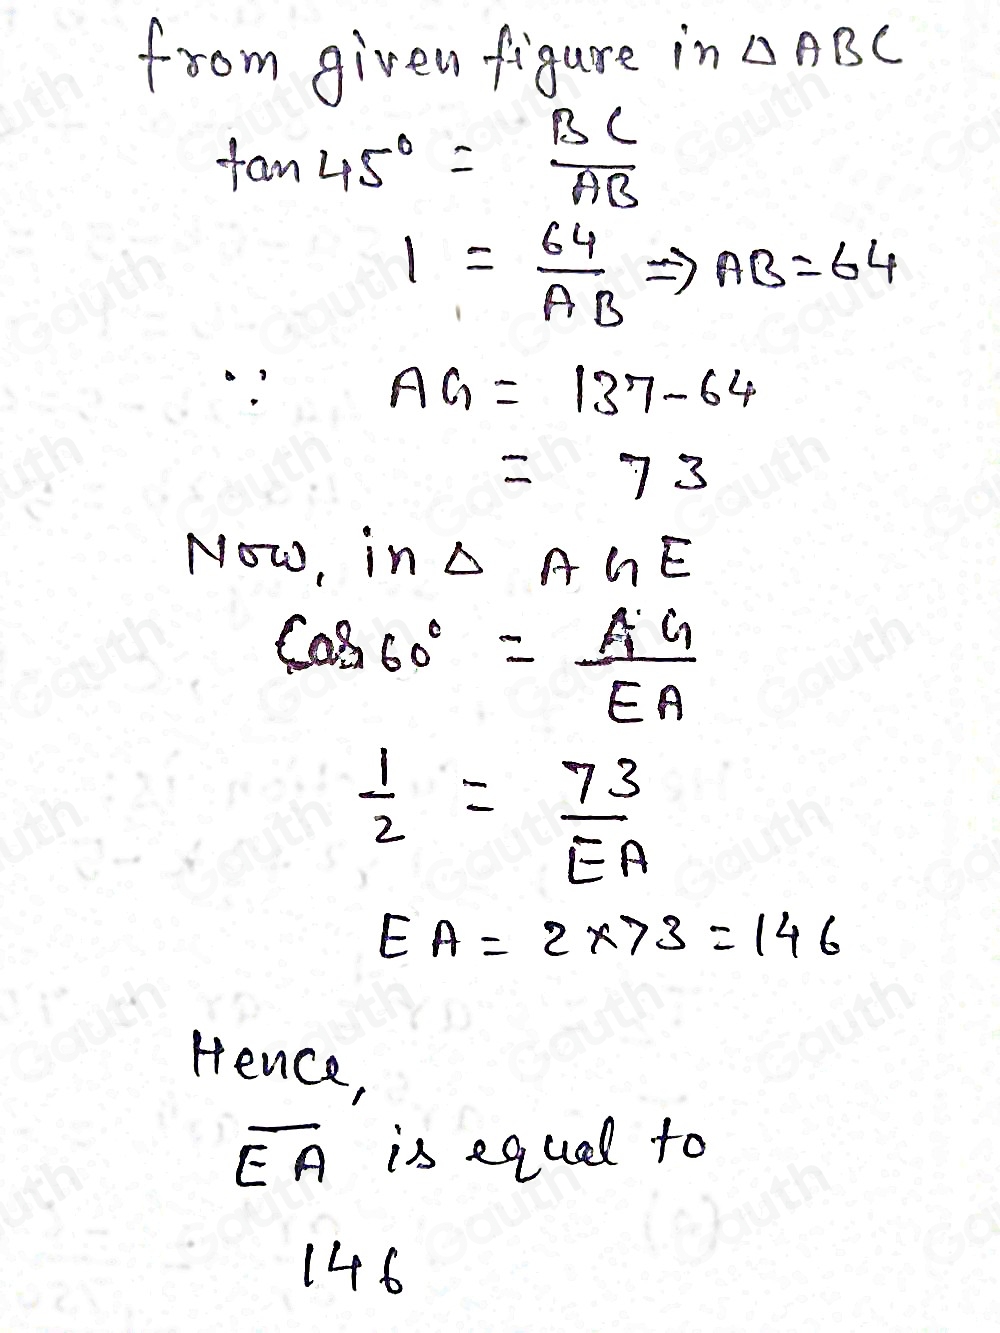 from given figure in △ ABC
tan 45° = BC/AB
1 = 64/AB ⇒ AB = 64
∵ AG = 137 - 64
= 73
Now, in △ AGE
Cos 60° = AG/EA
1/2 = 73/EA
EA = 2×73 = 146
Hence,
E̅A̅ is equal to
146
Gauth